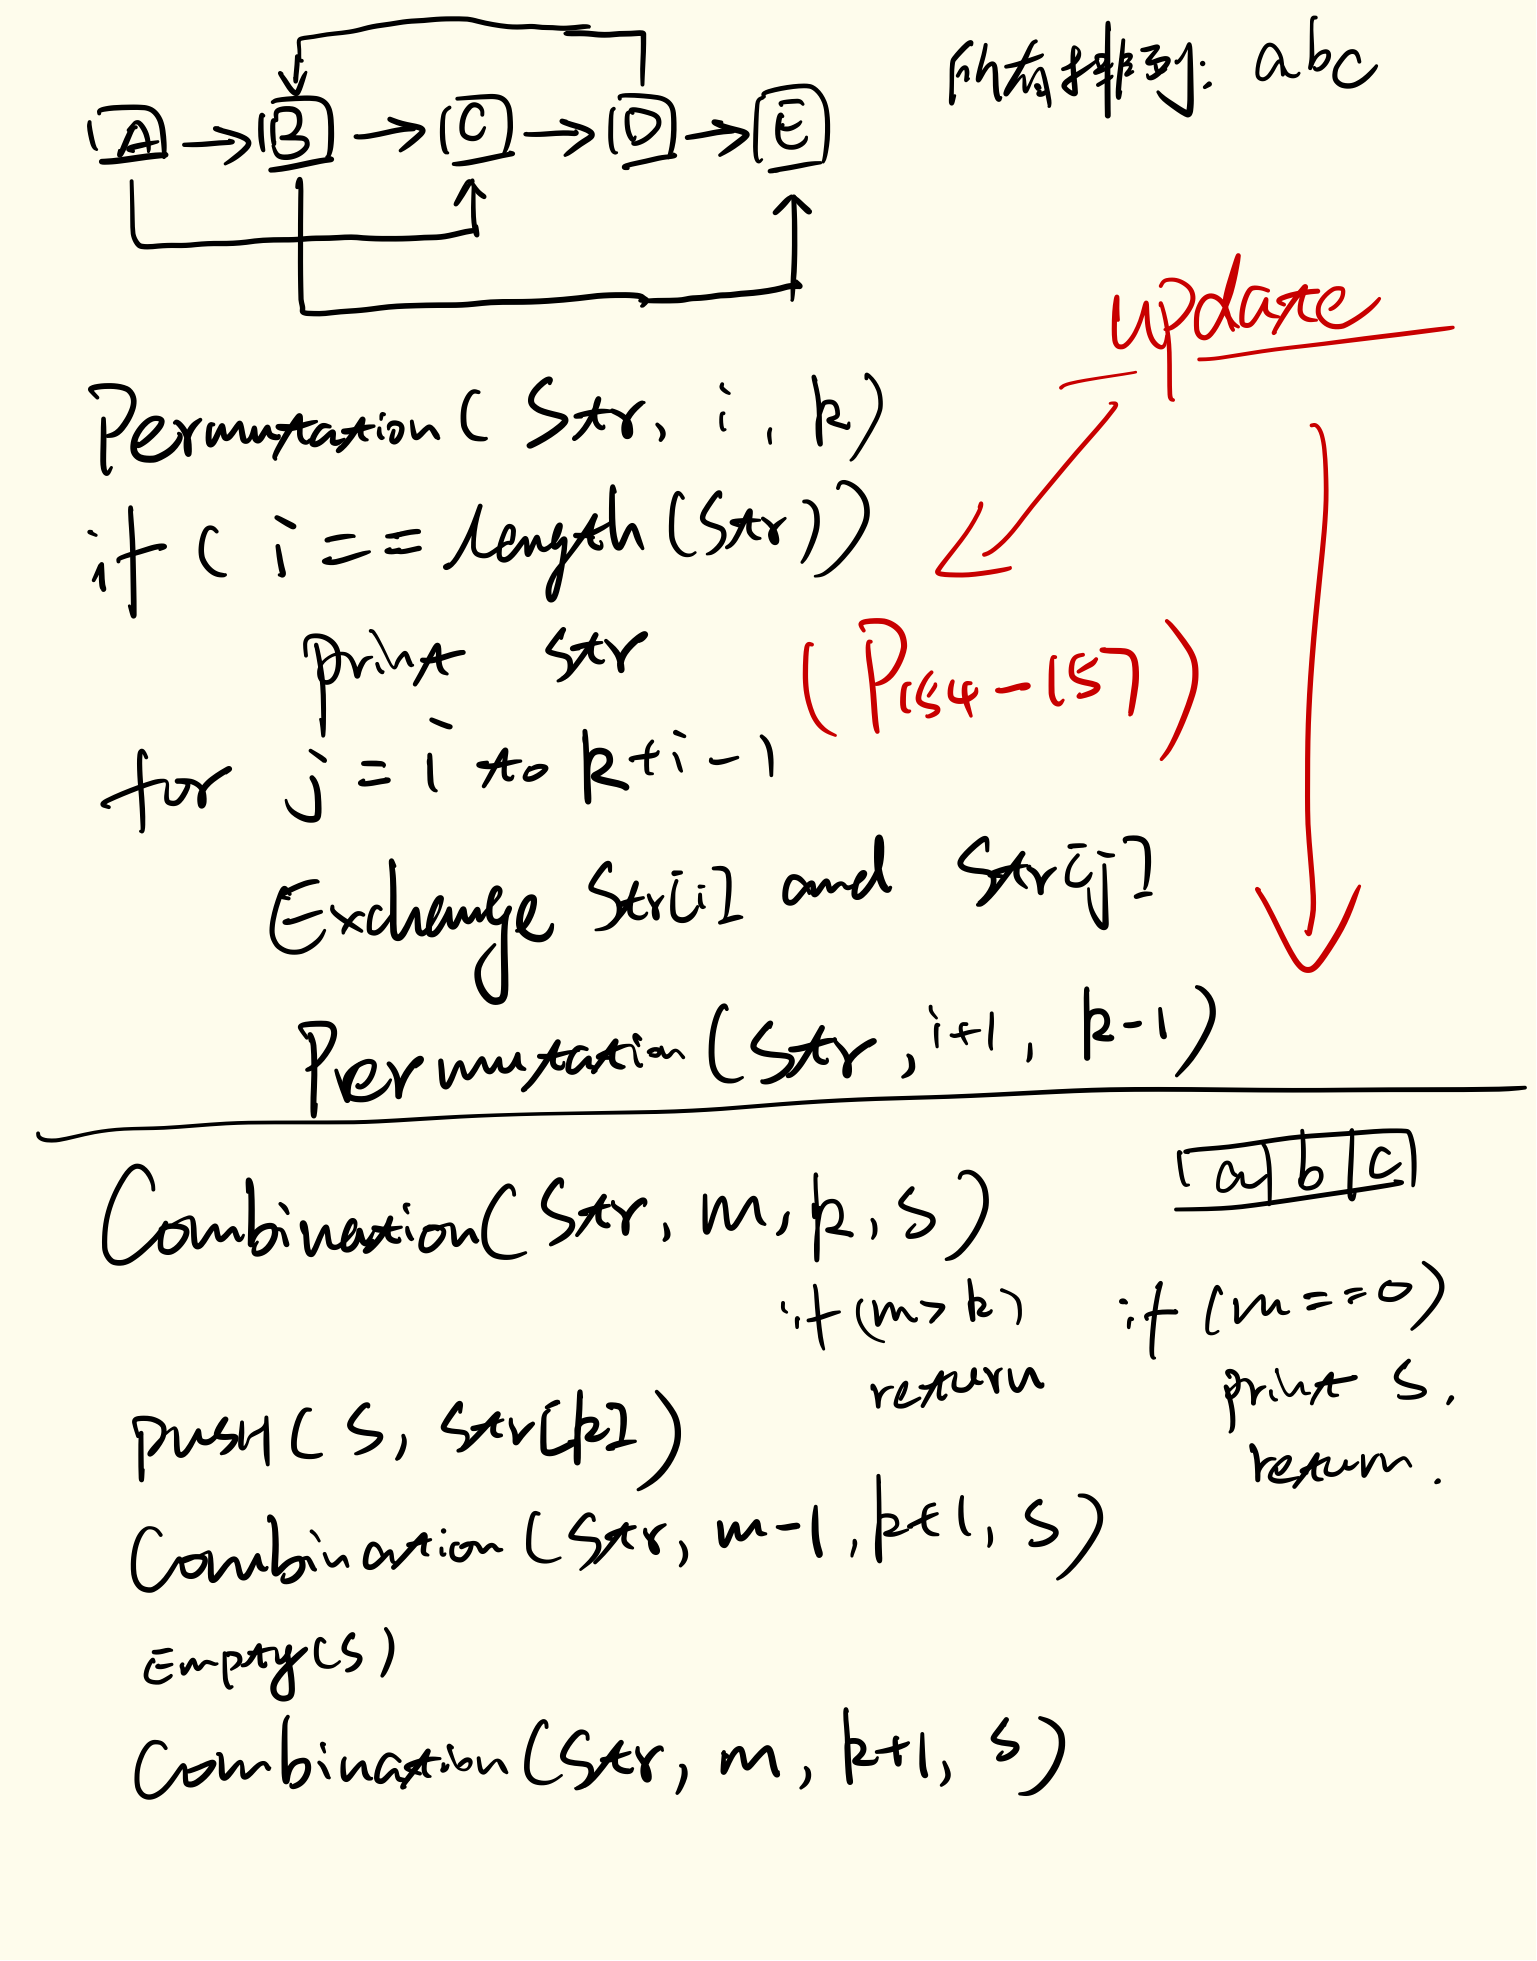 A B C D E
所有排列: abc
update
Permutation( Str, i, k)
if ( i == length(Str))
print str
(P154-157)
for j = i to k+i-1
Exchange Str[i] and Str[j]
Permutation(Str, i+1, k-1)
a b c
Combination(Str, m, k, s)
if (m > k)
return
if (m==0)
print s.
return.
push( S, Str[k])
Combination (Str, m-1, k+1, s)
Empty(s)
Combination(Str, m, k+1, s)